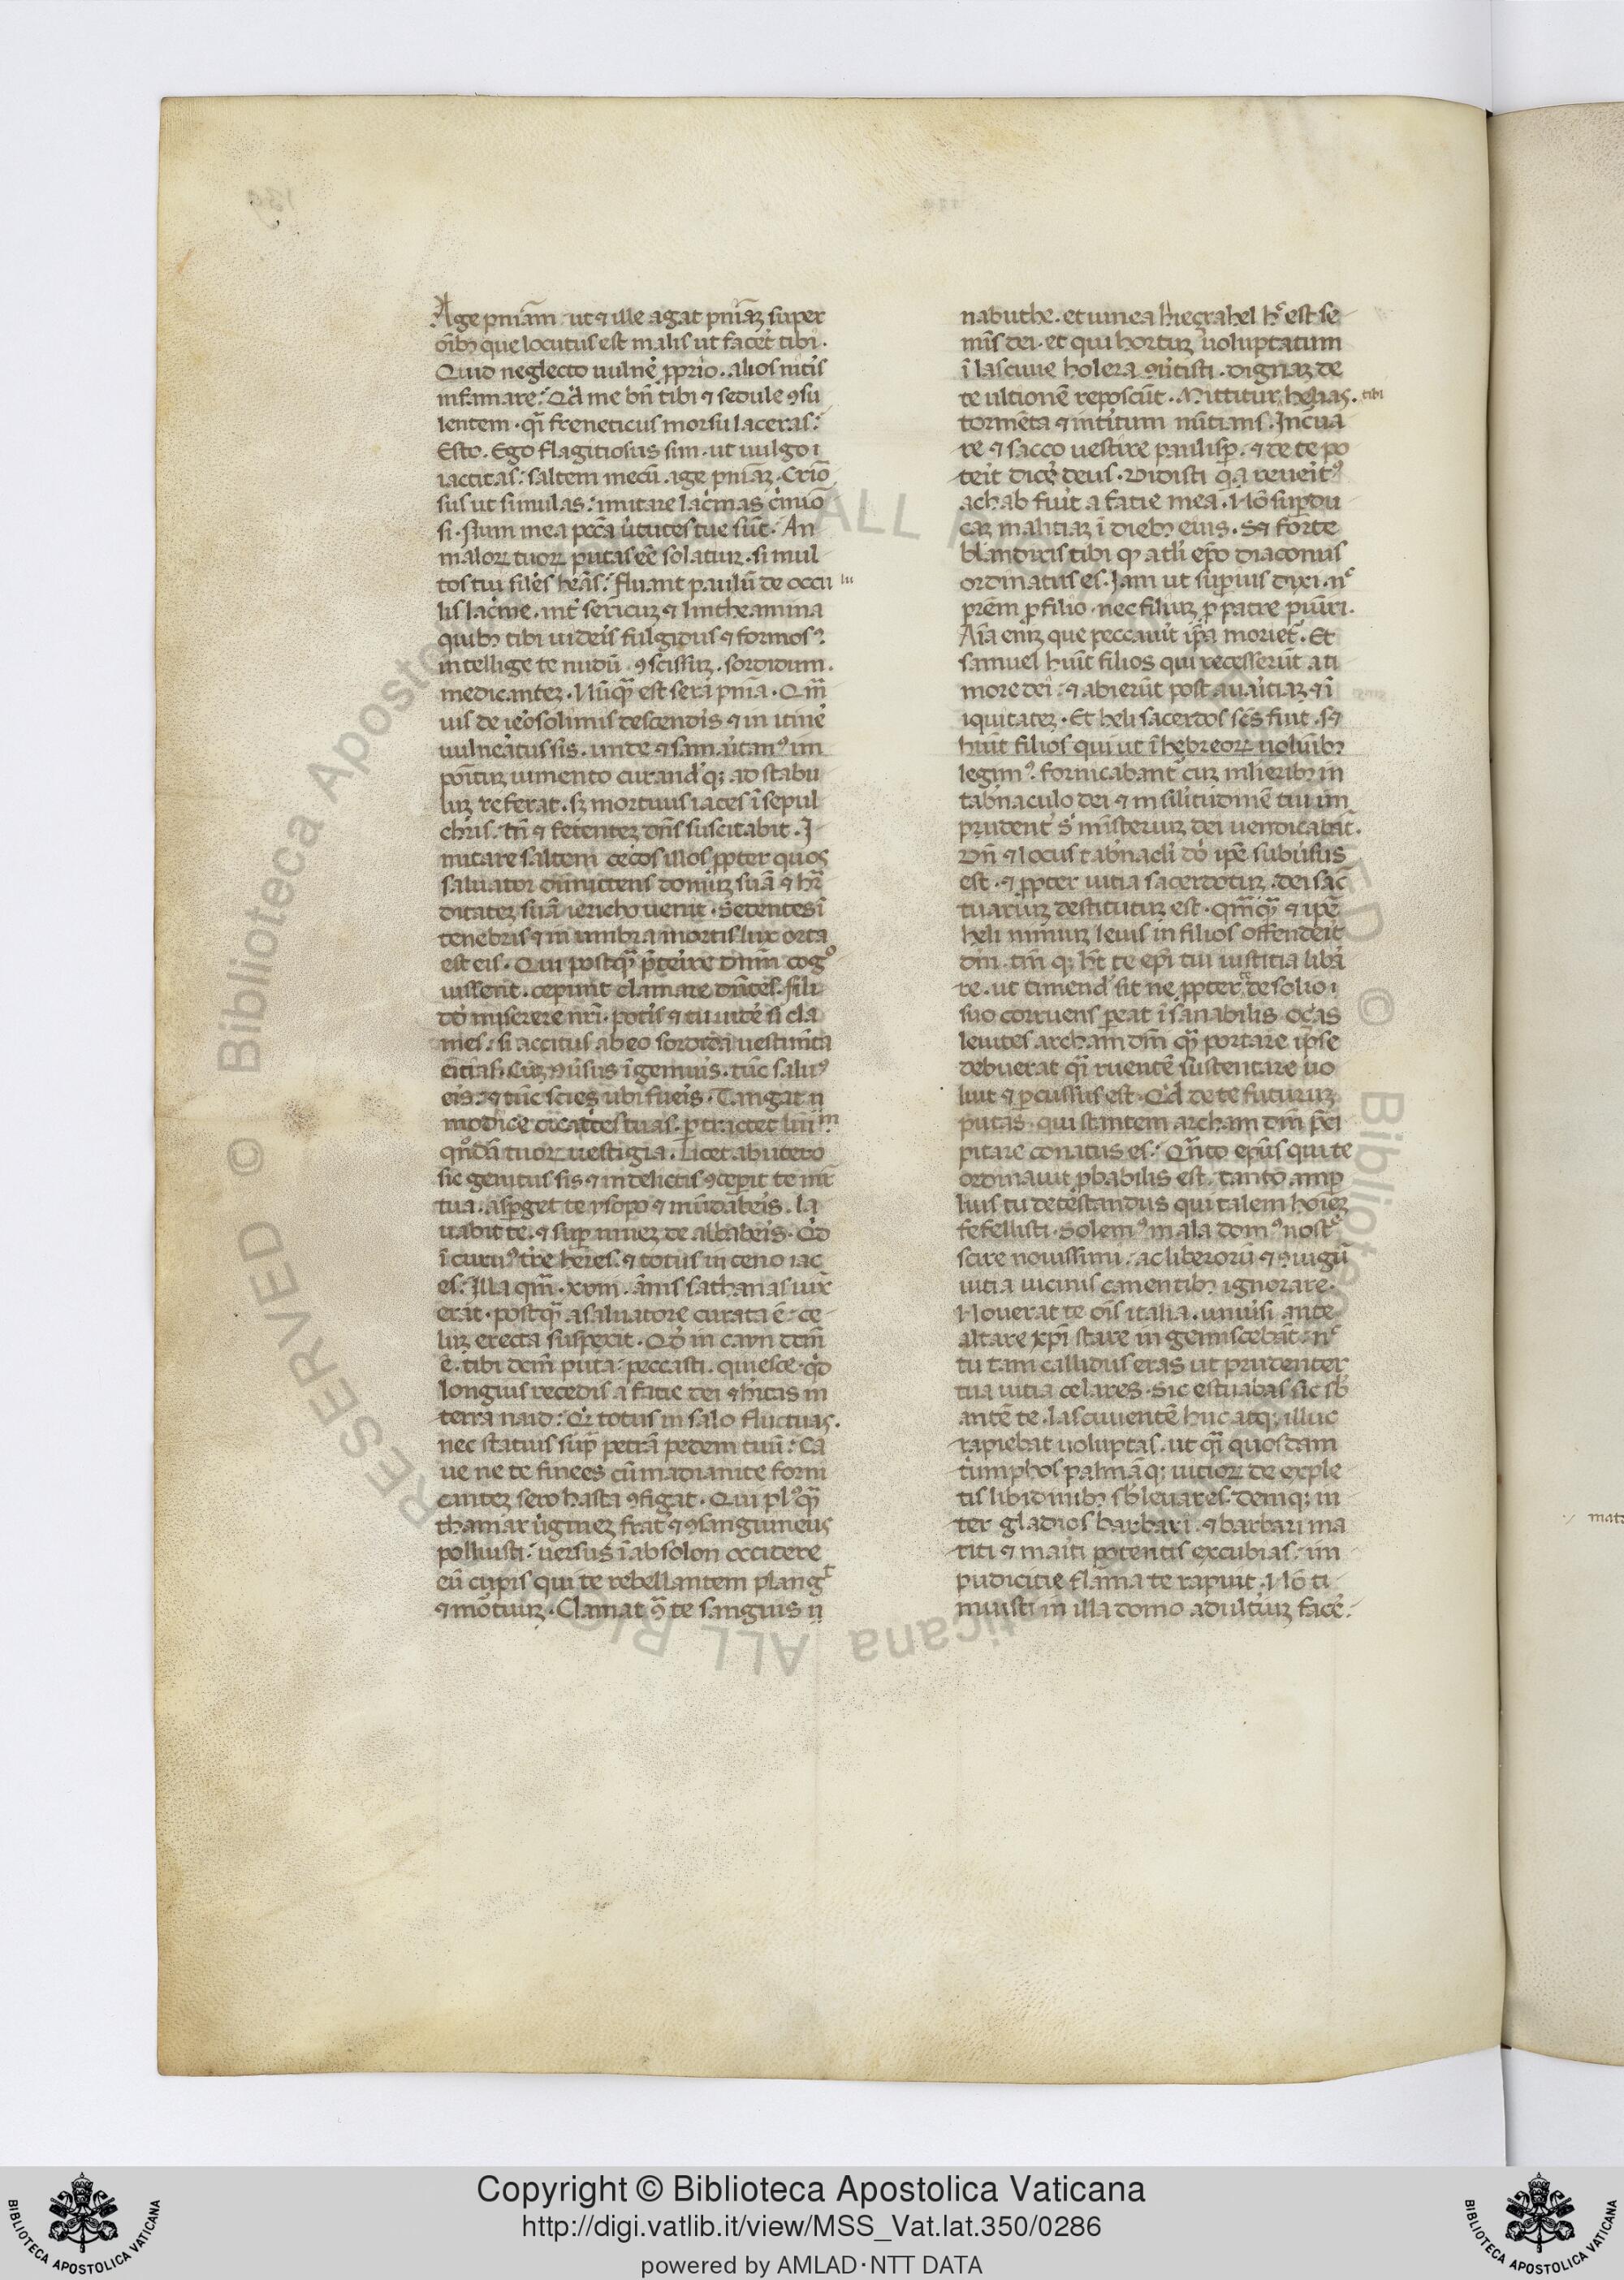 Age pniam̄ ut ⁊ ille agat pniāꝫ super
oībꝫ que locutus est malis ut facet tibi.
Quid neglecto uulnē pprio. alios nitis
infamare? Qđ me bn̄ tibi ⁊ sedule ꝯsu
lentem. qͣ freneticus morsu laceras?
Esto. Ego flagitiosus sim. ut uulgo i
iactitas: saltem mecū age pniāꝫ. Crīo
sus ut simulas: imitare lac̓mas c̓mīo
si. Num mea pccā ūtutes tue sūt. An
maloꝝ tuoꝝ putas eē solatiuꝫ. si mul
tos tui siles hēas? fluant paulū de occu
lis lac̓me. int̓ sericuꝫ ⁊ lintheamina
quibꝫ tibi uideis fulgidus ⁊ formosꝰ.
intellige te nudū. ꝯscissuꝫ. sordidum.
medicanteꝫ. Nūqͣ est sera pnīa. Qͣm
uis de ieosolimis descendis ⁊ in itinē
uulneatus sis. unde ⁊ samaritanꝰ im
poituꝫ iumento curandꝰ qꝫ ad stabu
luꝫ referat. sꝫ mortuus iaces ī sepul
chris. tn̄ ⁊ fetenteꝫ dn̄s suscitabit. I
mitare saltem cecos illos ppter quos
saluator dimittens domuꝫ suā ⁊ hr̄
ditateꝫ suā iericho uenit. Sedentes ī
tenebris ⁊ in umbra mortis lux orta
est eis. Qui postqͣ p̄teire dnm̄ cogº
uissent. ceperunt clamare dn̄tes. fili
dđ miserere nr̄i. potis ⁊ tu uidē si cla
mes: si accitus ab eo sordida uestimīta
eiciās. Cuꝫ ꝯuīsus īgemuis. tūc saluꝰ
eis. ⁊ tūc scies ubi fueis. Tangat ii
modice cicatces tuas. ptractet luīm
qͦdā tuoꝝ uestigia. Licet ab utero
sic genitus sis ⁊ in delictis ꝯcepit te mr̄
tua. aspget te ysopo ⁊ mūdabeis. la
uabit te. ⁊ sup niueꝫ de albabeis. Qđ
ī curuꝰ tr̄e heres. ⁊ totus in ceno iac
es? Illa qͣm .xviii. anis sathanas uix
erat. postqͣ a saluatore curata ē. ce
luꝫ erecta suspexit. Qđ in cayn dcm̄
ē. tibi dcm̄ puta: peccasti. quiesce. qđ
longius recedis a facie dei ⁊ hitas in
terra naid? Qr̄ totus in salo fluctuas.
nec statuis sup petrā pedem tuū? Ca
ue ne te finees cū madianite forni
canteꝫ sero hasta ꝯfigat. Qui plꝰqͣ
thamar ūgineꝫ frat̓ ⁊ ꝯsanguineus
polluisti: uersus ī absolon occidere
eū cupis qui te rebellantem plangᵗ
⁊ mōtuuꝫ. Clamat ꝯͣ te sanguis ii
nabuthe. et uinea hieçrahel hͦ est se
mīs dei. et qui hortuꝫ uoluptatum
ī lasciuie holera ꝯūtisti. dignaꝫ de
te ultionē reposcūt. Mittitur helias. tibi
tormēta ⁊ intitum nūtians. Incua
re ⁊ sacco uestire paulisp. ⁊ de te po
teit dicē deus. Vidisti qa reueitꝰ
achab fuit a facie mea. Nō supdu
caꝫ malitiaꝫ ī diebꝫ eius. S⁊ forte
blandiris tibi qꝫ a tli ep̄o diaconus
ordinatus es. Iam ut supius dixi. nᶜ
prēm p filio. nec filiuꝫ p patre puīri.
Aīa eniꝫ que peccauit ip̄a moriet̓. Et
samuel huit filios qui recesserūt a ti
more dei. ⁊ abierūt post auaritiaꝫ ⁊ ī
iquitateꝫ. Et heli sacerdos scs̄ fuit. s⁊
huit filios qui ut ī hebreoꝝ uoluībꝫ
legimꝰ. fornicabant̓ cuꝫ mlieribꝫ in
tab̓naculo dei ⁊ in silitudinē tui im
prudent̓ s̓ misteriuꝫ dei uendicabāt.
Vn̄ ⁊ locus tab̓nacli dō ip̄e subuīsus
est. ⁊ ppter uitia sacerdotuꝫ. dei sac̄
tuariuꝫ destitutuꝫ est. qͣmqͣ ⁊ ip̄e
heli nimiuꝫ leuis in filios offendeit
dm̄. tm̄ qꝫ ht̄ te ep̄i tui iustitia libā
re. ut timendꝰ sit ne ppter te de solio i
suo corruens peat ī sanabilis. Oças
leuites archam dm̄ qͣ portare ip̄se
debuerat qͣ ruentē sustentare uo
luit ⁊ pcussus est. Qđ de te futuruꝫ
putas. qui stantem archam dm̄ p̄ci
pitare conatus es? Qͣnto ep̄us qui te
ordinauit pbabilis est. tanto amp
lius tu detestandus qui talem hoieꝫ
fefellisti. Solemꝰ mala domꝰ nostᵉ
scire nouissimi. ac liberorū ⁊ ꝯiugū
uitia uicinis canentibꝫ ignorare.
Nouerat te oīs italia. uniūsi ante
altare xp̄i stare ingemiscebāt. nᶜ
tu tam callidus eras ut prudenter
tua uitia celares. Sic estuabas sic sb̄
antē te lasciuientē huc atqꝫ illuc
rapiebat uoluptas. ut qͣ quosdam
tiumphos palmāqꝫ uitioꝝ de exple
tis libidinibꝫ sb̓leuares. deniqꝫ in
ter gladios barbari. ⁊ barbari ma
titi ⁊ maiti potentis excubias. im
pudicitie flāma te rapuit. Nō ti
muisti in illa domo adultiuꝫ facē.
mat
Copyright © Biblioteca Apostolica Vaticana
http://digi.vatlib.it/view/MSS_Vat.lat.350/0286
powered by AMLAD·NTT DATA